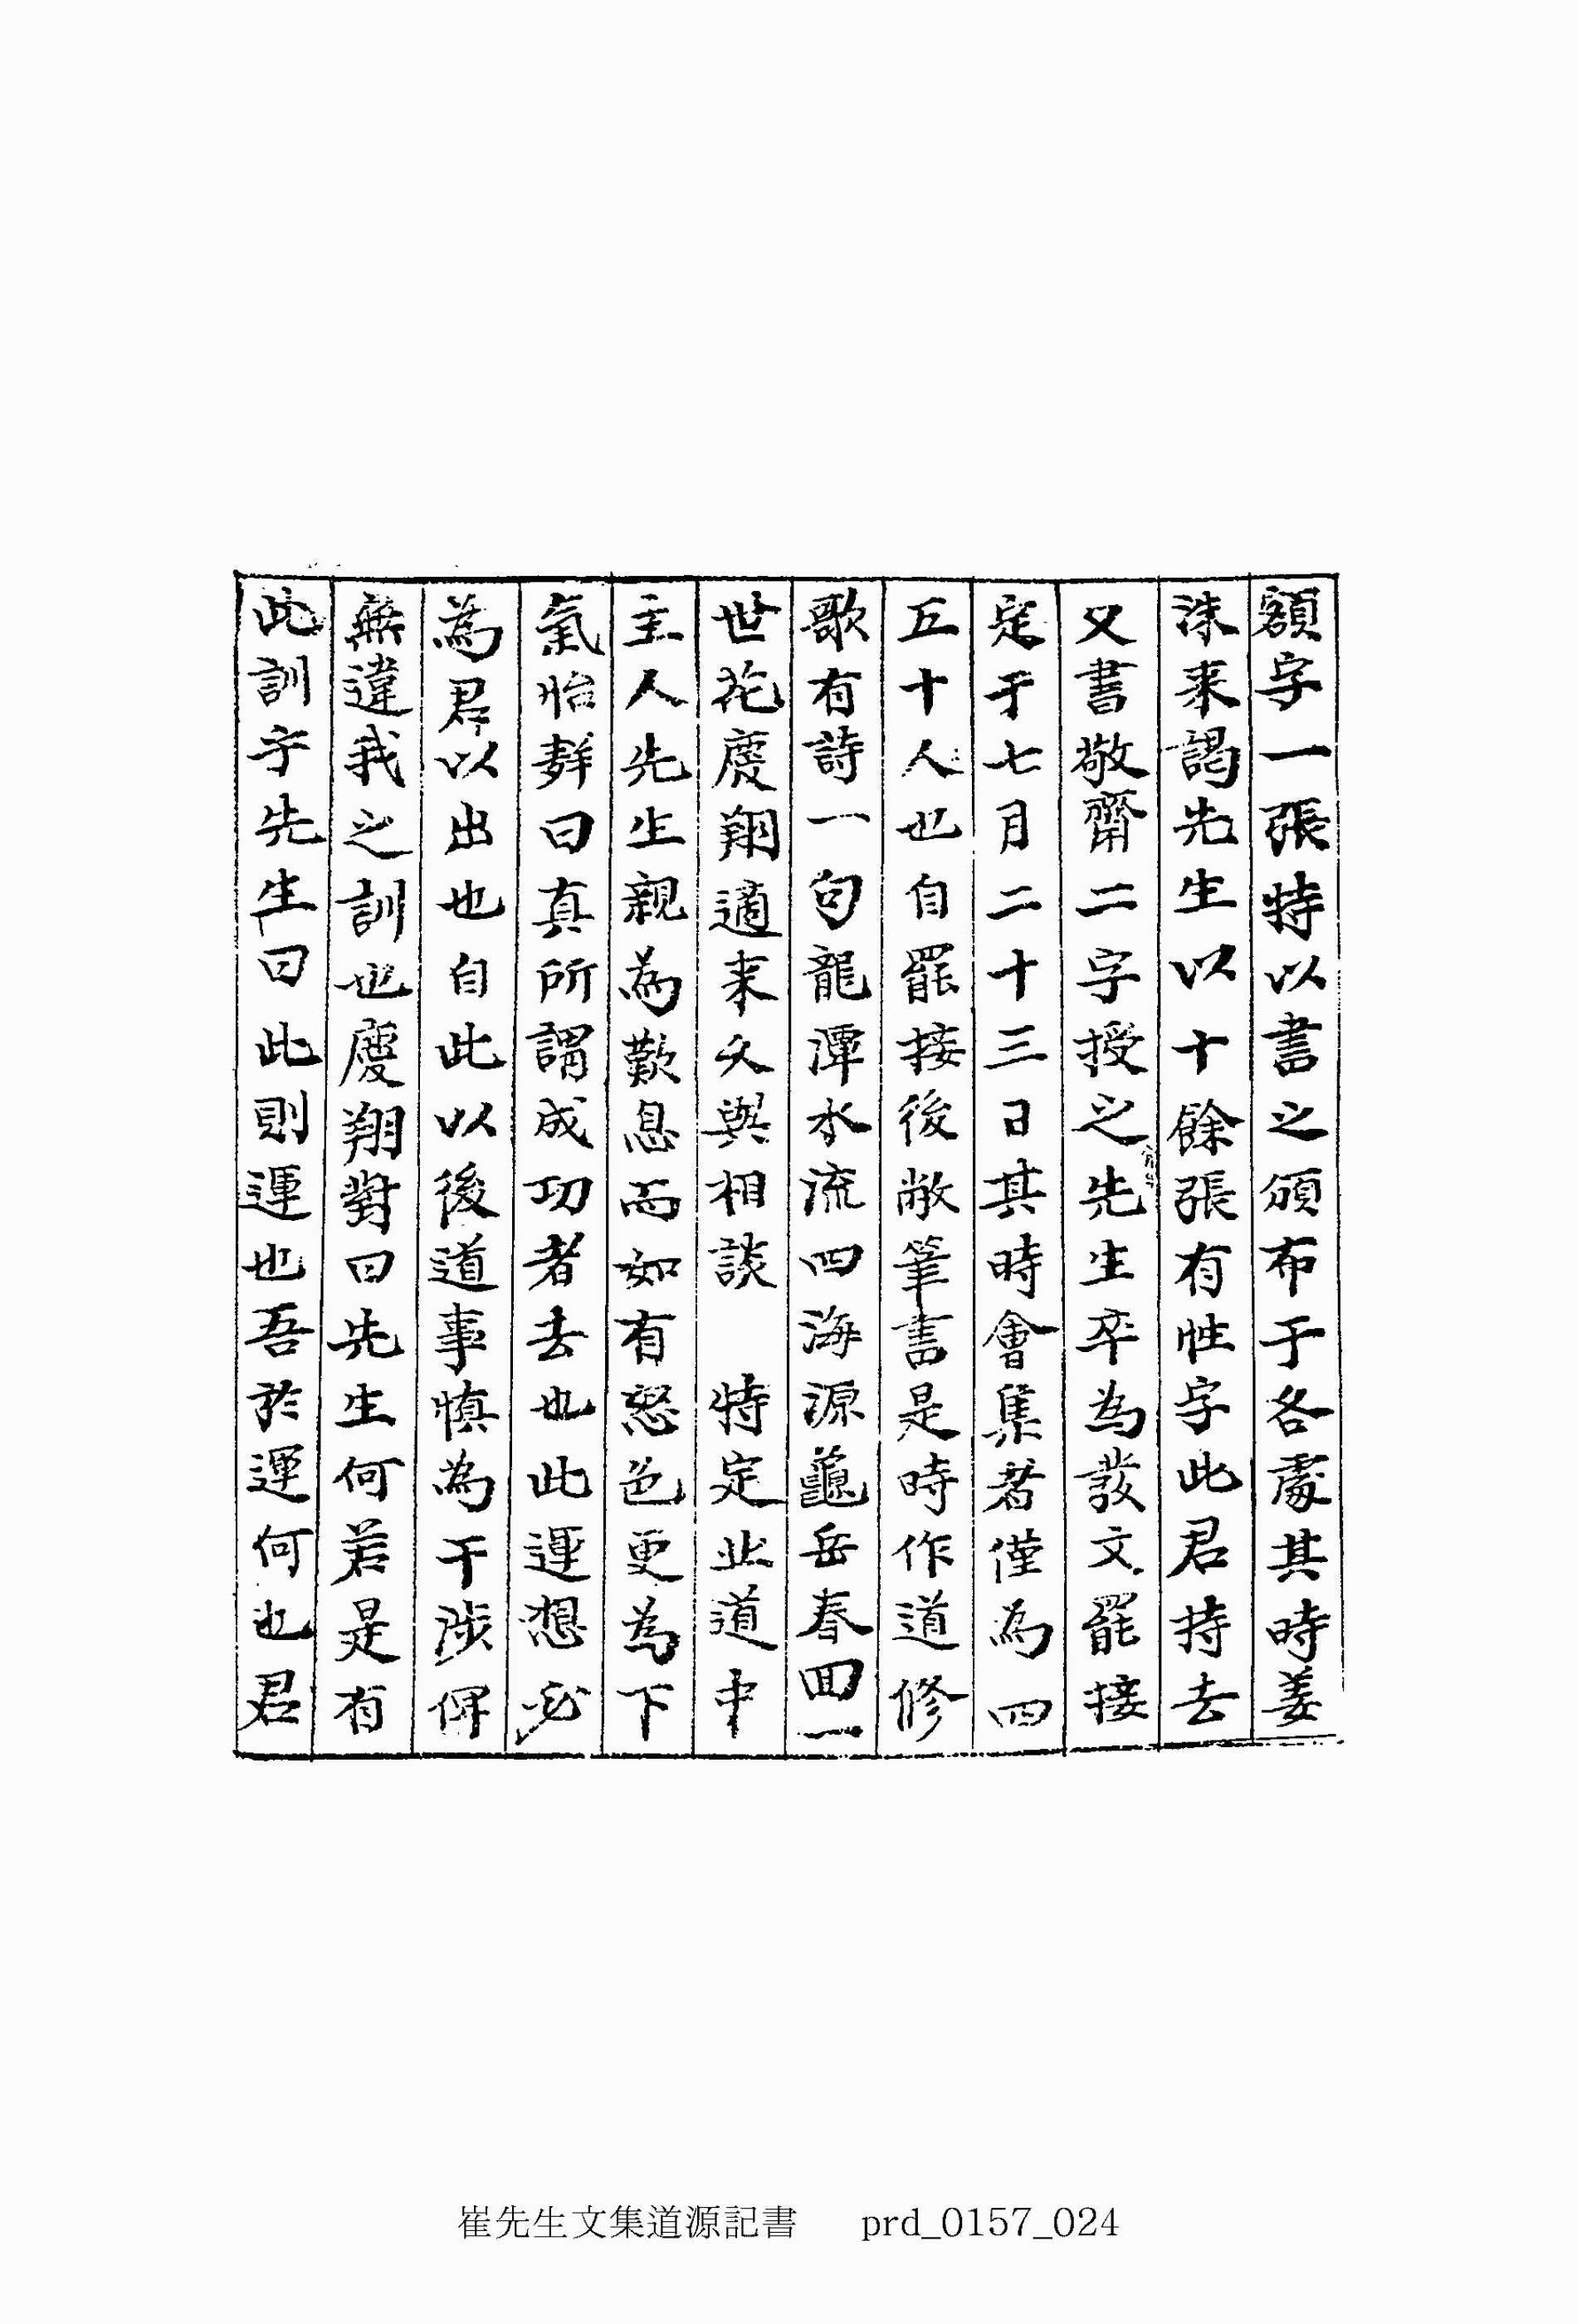 額字一張特以書之頒布于各處其時姜
洙来謁先生以十餘張有性字此君持去
又書敬齋二字授之先生卒為發文罷接
定于七月二十三日其時會集者僅為四
五十人也自罷接後敝筆書是時作道修
歌有詩一句龍潭水流四海源龜岳春回一
世花慶翔適来久與相談 特定北道中
主人先生親為歎息而如有怒色更為下
氣怡聲曰真所謂成功者去也此運想必
為君以出也自此以後道事慎為干涉俾
無違我之訓也慶翔對曰先生何若是有
此訓乎先生曰此則運也吾於運何也君
崔先生文集道源記書 prd_0157_024